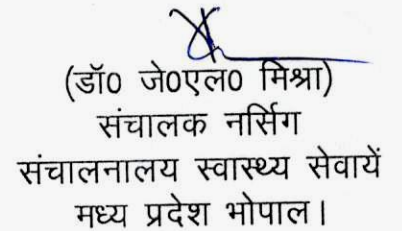 (डॉ0 जे0एल0 मिश्रा)
संचालक नर्सिग
संचालनालय स्वास्थ्य सेवायें
मध्य प्रदेश भोपाल।